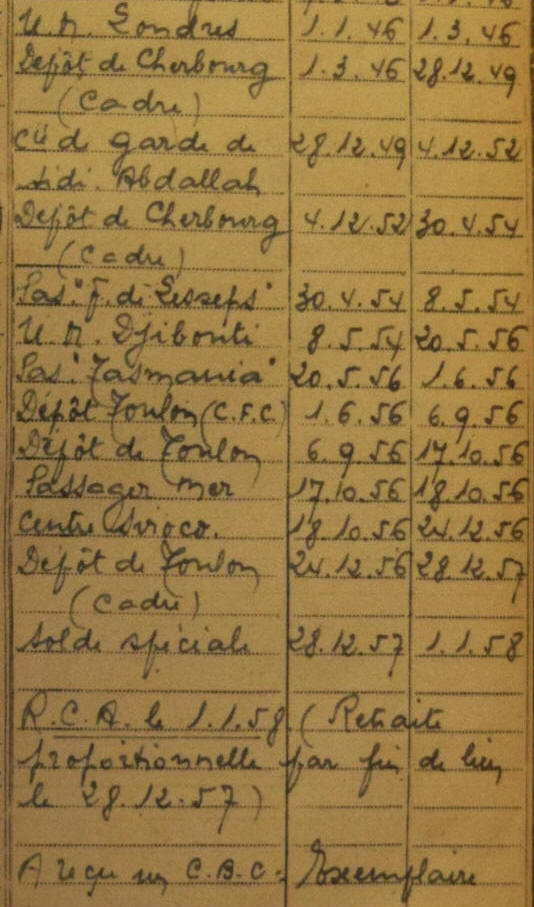 U.M. Londres 1.1.46 1.3.46
Depôt de Cherbourg 1.3.46 28.12.49
(Cadre)
Cie de garde de 28.12.49 4.12.52
Sidi. Abdallah
Depôt de Cherbourg 4.12.52 30.4.54
(Cadre)
Pas. "F. de Lesseps" 30.4.54 8.5.54
U.M. Djibouti 8.5.54 20.5.56
Pas. "Tasmania" 20.5.56 1.6.56
Dépôt Toulon (C.F.C.) 1.6.56 6.9.56
Dépôt de Toulon 6.9.56 17.10.56
Passager mer 17.10.56 18.10.56
Centre Siroco. 18.10.56 24.12.56
Depôt de Toulon 24.12.56 28.12.57
(Cadre)
Solde spéciale 28.12.57 1.1.58
R.C.A. le 1.1.58. (Retraite
proportionnelle par fin de lien
le 28.12.57)
A reçu un C.B.C. Exemplaire